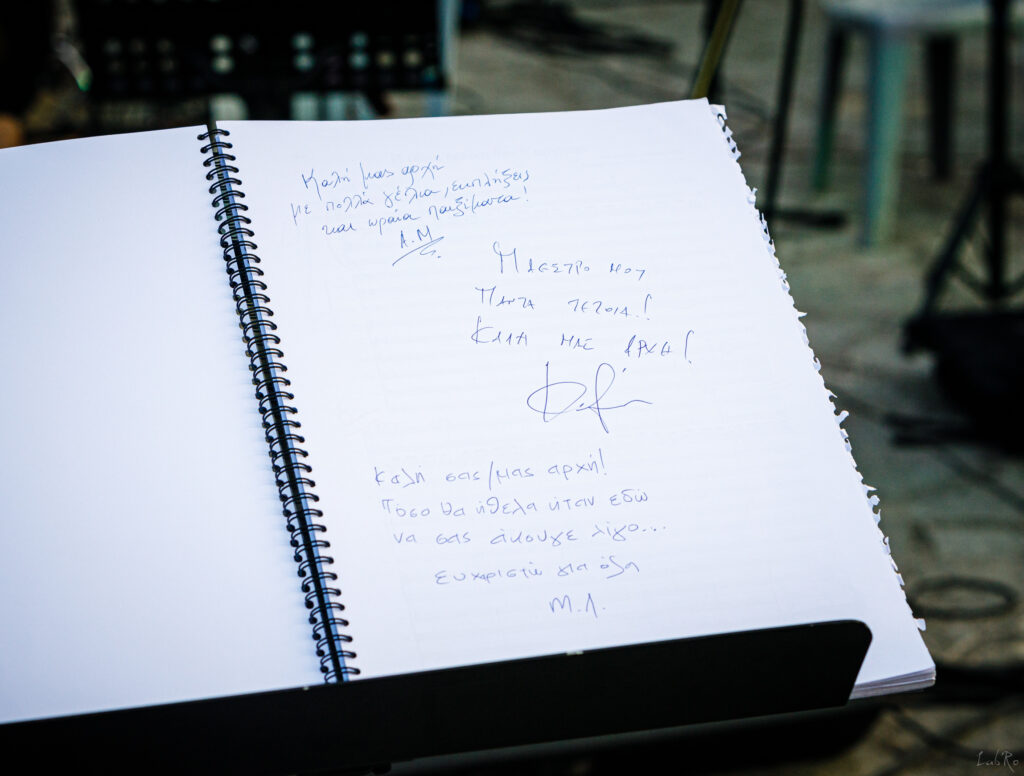 Καλή μας αρχή
με πολλά γέλια, εκπλήξεις
και ωραία παιξίματα!
Α.Μ
ΜΑΕΣΤΡΟ ΜΟΥ
ΠΑΝΤΑ ΤΕΤΟΙΑ!
ΚΑΛΗ ΜΑΣ ΑΡΧΗ!
Καλή σας/μας αρχή!
Πόσο θα ήθελα ήταν εδώ
να σας άκουγε λίγο...
ευχαριστώ για όλα
Μ.Λ.
Lab'Ro